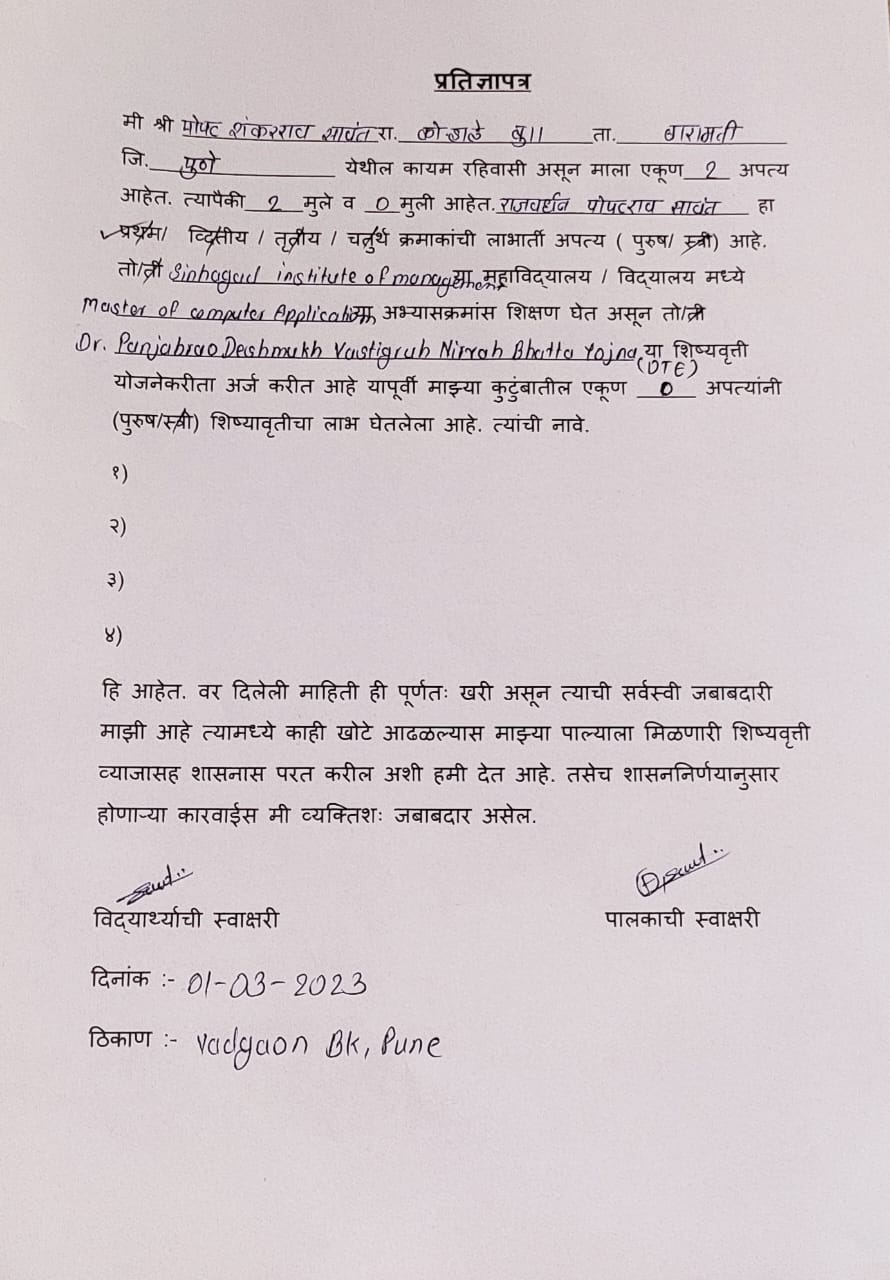 प्रतिज्ञापत्र
मी श्री पोपट शंकरराव सावंत रा. कोऱ्हाळे बु॥ ता. बारामती
जि. पुणे येथील कायम रहिवासी असून माला एकूण 2 अपत्य
आहेत. त्यापैकी 2 मुले व 0 मुली आहेत. राजवर्धन पोपटराव सावंत हा
प्रथम/ व्दितीय / तृतीय / चतुर्थ क्रमाकांची लाभार्ती अपत्य ( पुरुष/ स्त्री) आहे.
तो/ती Sinhagad institute of management या महाविद्यालय / विद्यालय मध्ये
Master of computer Application या अभ्यासक्रमांस शिक्षण घेत असून तो/ती
Dr. Panjabrao Deshmukh Vastigruh Nirvah Bhatta Yojna या शिष्यवृत्ती
(DTE)
योजनेकरीता अर्ज करीत आहे यापूर्वी माझ्या कुटुंबातील एकूण 0 अपत्यांनी
(पुरुष/स्त्री) शिष्यावृतीचा लाभ घेतलेला आहे. त्यांची नावे.
१)
२)
३)
४)
हि आहेत. वर दिलेली माहिती ही पूर्णतः खरी असून त्याची सर्वस्वी जबाबदारी
माझी आहे त्यामध्ये काही खोटे आढळल्यास माझ्या पाल्याला मिळणारी शिष्यवृत्ती
व्याजासह शासनास परत करील अशी हमी देत आहे. तसेच शासननिर्णयानुसार
होणाऱ्या कारवाईस मी व्यक्तिशः जबाबदार असेल.
विद्यार्थ्याची स्वाक्षरी पालकाची स्वाक्षरी
दिनांक :- 01-03-2023
ठिकाण :- Vadgaon BK, Pune